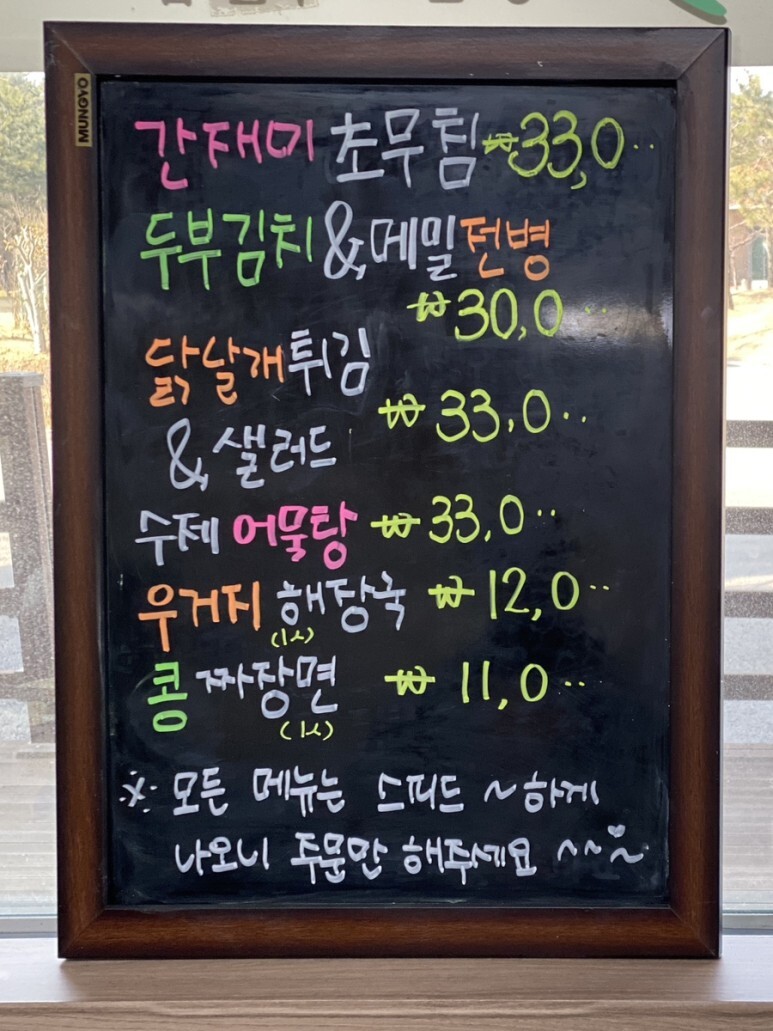 MUNGYO
간재미 초무침 ₩33,0..
두부김치 &,메밀전병
₩30,0..
닭날개튀김
&, 샐러드 ₩33,0..
수제 어묵탕 ₩33,0..
우거지 해장국 ₩12,0..
(1人)
콩 짜장면 ₩11,0..
(1人)
※ 모든 메뉴는 스피드~하게
나오니 주문만 해주세요~~♡~